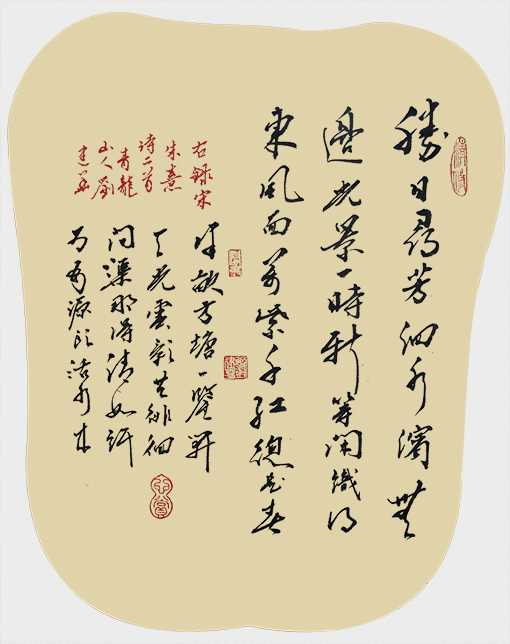 勝日尋芳泗水濱無
邊光景一時新等閑織得
東風面萬紫千紅總是春
半畝方塘一鑒開
天光雲影共徘徊
問渠那得清如許
為有源頭活水來
右録宋
朱熹
诗二首
青龍
山人劉
建